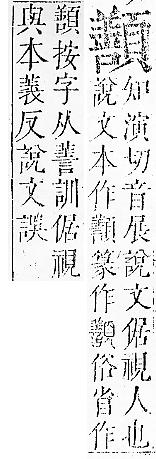 知演切音展說文倨視人也
說文本作篆作俗省作
按字从譱訓倨視
與本義反說文誤